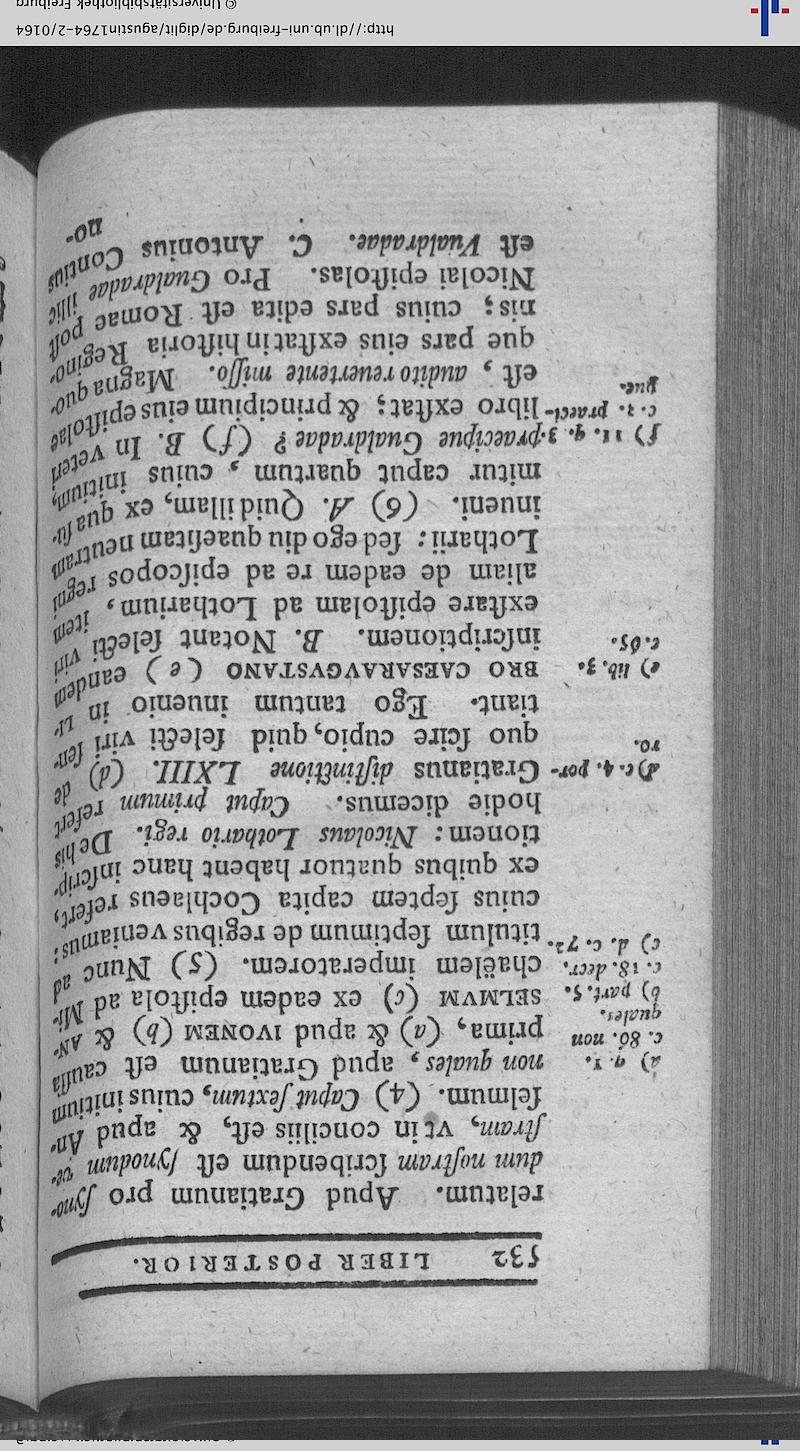 532 LIBER POSTERIOR.
relatum. Apud Gratianum pro ſyno-
dum noſtram ſcribendum eſt ſynodum ve-
ſtram, vt in conciliis eſt, & apud An-
ſelmum. (4) Caput ſextum, cuius initium
non quales, apud Gratianum eſt cauſſa
prima, (a) & apud IVONEM (b) & AN-
SELMVM (c) ex eadem epiſtola ad Mi-
chaëlem imperatorem. (5) Nunc ad
titulum ſeptimum de regibus veniamus:
cuius ſeptem capita Cochlaeus refert,
ex quibus quatuor habent hanc inſcrip-
tionem: Nicolaus Lothario regi. De his
hodie dicemus. Caput primum refert
Gratianus diſtinctione LXIII. (d) de
quo ſcire cupio, quid ſelecti viri ſen-
tiant. Ego tantum inuenio in LI-
BRO CAESARAVGVSTANO (e) eandem
inſcriptionem. B. Notant ſelecti viri
exſtare epiſtolam ad Lotharium, item
aliam de eadem re ad epiſcopos regni
Lotharii: ſed ego diu quaeſitam neutram
inueni. (6) A. Quid illam, ex qua ſu-
mitur caput quartum, cuius initium,
praecipue Gualdradae? (f) B. In veteri
libro exſtat; & principium eius epiſtolae
eſt, audito reuertente miſſo. Magna quo-
que pars eius exſtat in hiſtoria Regino-
nis; cuius pars edita eſt Romae poſt
Nicolai epiſtolas. Pro Gualdradae illic
eſt Vualdradae. C. Antonius Contius
no-
a) q. 1.
c. 86. non
quales.
b) part. 5.
c. 18. decr.
c) d. c. 72.
d) c. 4. por-
ro.
e) lib. 3.
c. 65.
f) 11. q. 3.
c. 3. praeci-
pue.
http://dl.ub.uni-freiburg.de/diglit/agustin1764-2/0164
© Universitätsbibliothek Freiburg